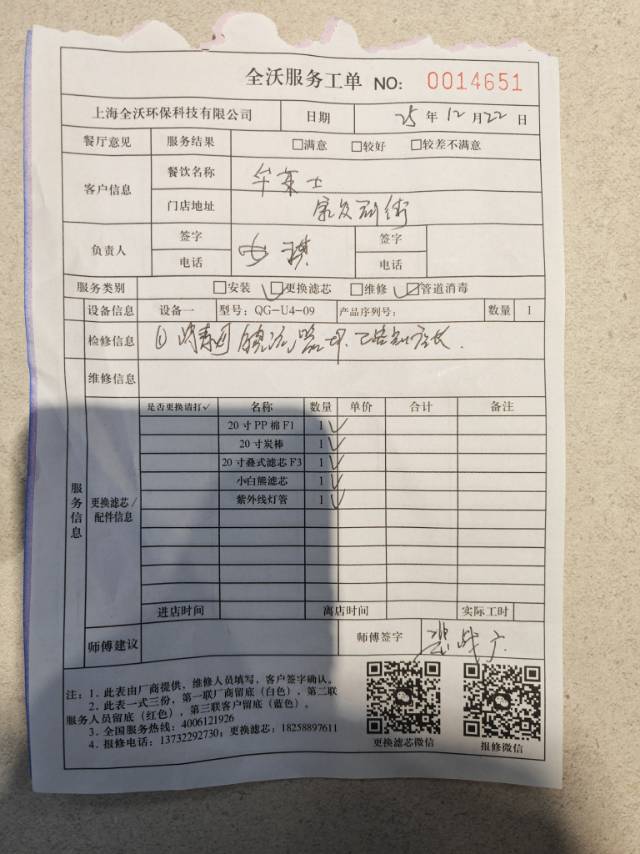 全沃服务工单 NO: 0014651
上海全沃环保科技有限公司 日期 25 年 12 月 22 日
餐厅意见 服务结果 □满意 □较好 □较差不满意
客户信息 餐饮名称
门店地址
负责人 签字 签字
电话 电话
服务类别 □安装 □更换滤芯 □维修 □管道消毒
设备信息 设备一 型号: QG-U4-09 产品序列号: 数量 1
检修信息 ①
维修信息
服务信息
更换滤芯/配件信息
是否更换请打✓ 名称 数量 单价 合计 备注
20寸PP棉F1 1 ✓
20寸炭棒 1 ✓
20寸叠式滤芯F3 1 ✓
小白熊滤芯 1 ✓
紫外线灯管 1 ✓
进店时间 离店时间 实际工时
师傅建议 师傅签字
注: 1. 此表由厂商提供, 维修人员填写, 客户签字确认。
2. 此表一式三份, 第一联厂商留底(白色), 第二联
服务人员留底(红色), 第三联客户留底(蓝色)。
3. 全国服务热线: 4006121926
4. 报修电话: 13732292730; 更换滤芯: 18258897611
更换滤芯微信 报修微信